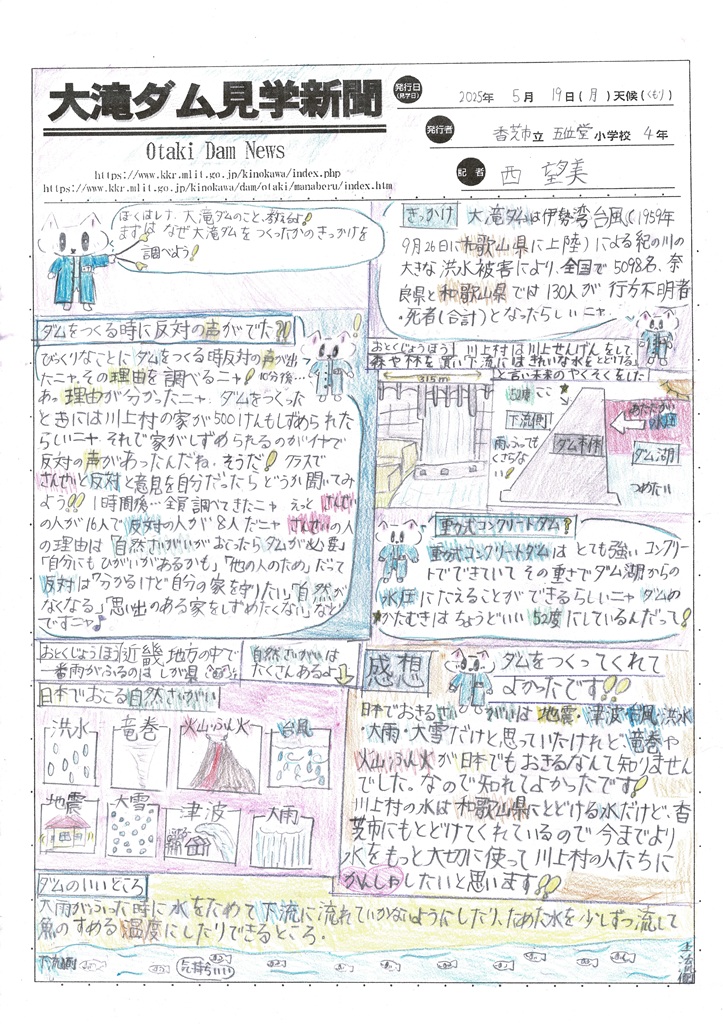 大滝ダム見学新聞
Otaki Dam News
https://www.kkr.mlit.go.jp/kinokawa/index.php
https://www.kkr.mlit.go.jp/kinokawa/dam/otaki/manaberu/index.htm
発行日(見学日) 2025年 5月 19日(月)天候(くもり)
発行者 香芝市立 五位堂 小学校 4年
記者 西 望美
大滝ダムのこと、教えるよ!
まずは なぜ大滝ダムをつくったかのきっかけを
調べよう!
きっかけ 大滝ダムは伊勢湾台風(1959年
9月26日に和歌山県に上陸)による紀の川の
大きな洪水被害により、全国で5098名、奈
良県と和歌山県では130人が行方不明者
・死者(合計)となったらしいニャ.
ダムをつくる時に反対の声がでた?!
びっくりなことにダムをつくる時反対の声が出
たニャ.その理由を調べるニャ!10分後…
あっ理由が分かったニャ.ダムをつくった
ときには川上村の家が500けんもしずめられた
らしいニャ.それで家がしずめられるのがイヤで
反対の声があったんだね.そうだ!クラスで
さんせいと反対と意見を自分だったらどうか聞いてみ
よう!!1時間後…全員調べてきたニャ えっと さんせい
の人が16人で反対の人が8人だニャ さんせいの人
の理由は「自然さいがいがおこったらダムが必要」
「自分にもひがいがあるかも」「他の人のため」だって
反対は「分かるけど自分の家を守りたい」「自然が
なくなる」「思い出のある家をしずめたくない」など
ですニャ♪
おとくじょうほう!川上村は川上せんげんをして
森や林を買い下流にはきれいな水をとどける
と言い未来のやくそくをした
315m
52度 ここ
下流側
雨ふってもくずさない!
ダム本体
あたたかい
水圧
ダム湖
つめたい
重力式コンクリートダム?
重力式コンクリートダムは とても強い コンクリー
トでできていて その重さでダム湖からの
水圧にたえることができるらしいニャ ダムの
★かたむきはちょうどいい52度にしているんだって!
おとくじょうほう 近畿地方の中で
一番雨がふるのは しが県
自然さいがいは
たくさんあるよ
日本でおこる自然さいがい
洪水
竜巻
火山ふん火
台風
地震
大雪
津波
大雨
感想 ダムをつくってくれて
よかったです!!
日本でおきるさいがいは 地震・津波・台風・洪水
・大雨・大雪だけと思っていたけれど、竜巻や
火山ふん火が日本でもおきるなんて知りません
でした。なので知れてよかったです!
川上村の水は和歌山県にとどける水だけど、香
芝市にもとどけてくれているので今までより
水をもっと大切に使って川上村の人たちに
かんしゃしたいと思います!!
ダムのいいところ
大雨がふった時に水をためて下流に流れていかないようにしたり、ためた水を少しずつ流して
魚のすめる温度にしたりできるところ.
下流側
気持ちいい
上流側